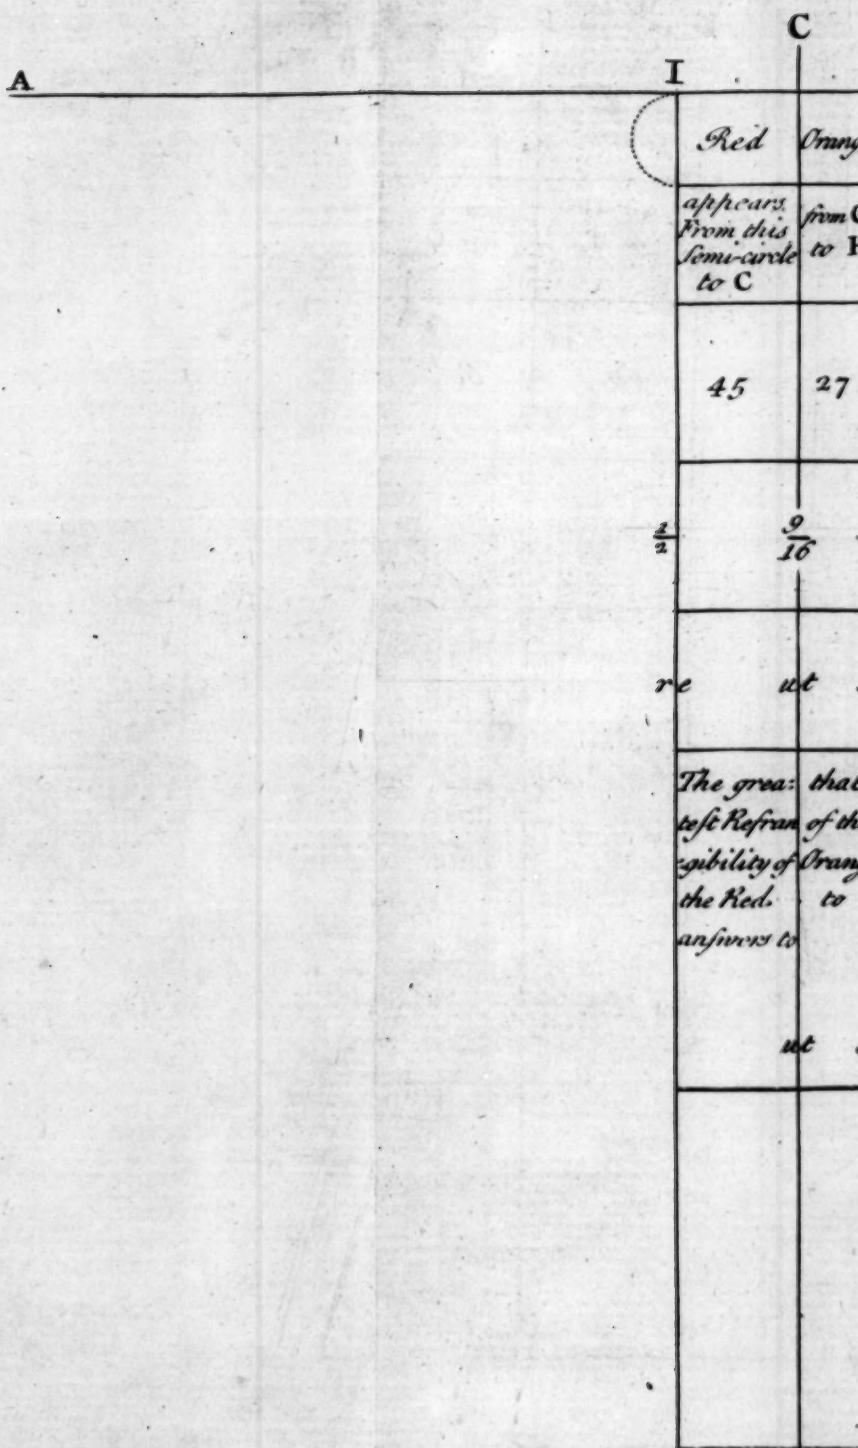 C
A I
Red Orang
appears
From this
Semi-circle
to C
from C
to H
45 27
1/2 9/16
re ut
The grea:
teſt Refran
-gibility of
the Red.
anſwers to
ut
that
of th
Orang
to